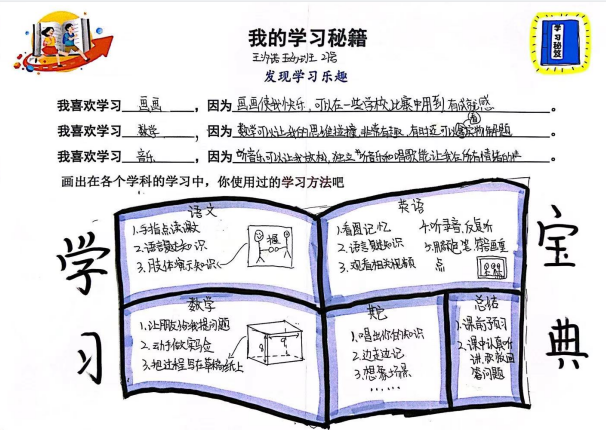 我的学习秘籍
发现学习乐趣
学习秘笈
我喜欢学习 画画 ，因为 画画使我快乐，可以在一些学校比赛中用到 有成就感 。
我喜欢学习 数学 ，因为 数学可以让我的思维 非常有趣，有时还可以 看 实物 题 。
我喜欢学习 音乐 ，因为 听音乐可以让我放松， 听音乐和唱歌能让我 。
画出在各个学科的学习中，你使用过的学习方法吧
学习
宝典
语文
1.手指点读
2.语言 知识
3.肢体演示知识
英语
1.看图记忆
2.语言 知识
3.观看相关视频
4.听录音，反复听
5. 笔， 重
点
数学
1.让朋友给我提问题
2.动手做实验
3.把过程写在草稿纸上
其它
1.唱出你的知识
2.边走边记
3.想象场景
……
总结
1.课前预习
2.课中认真听
讲，积极回
答问题